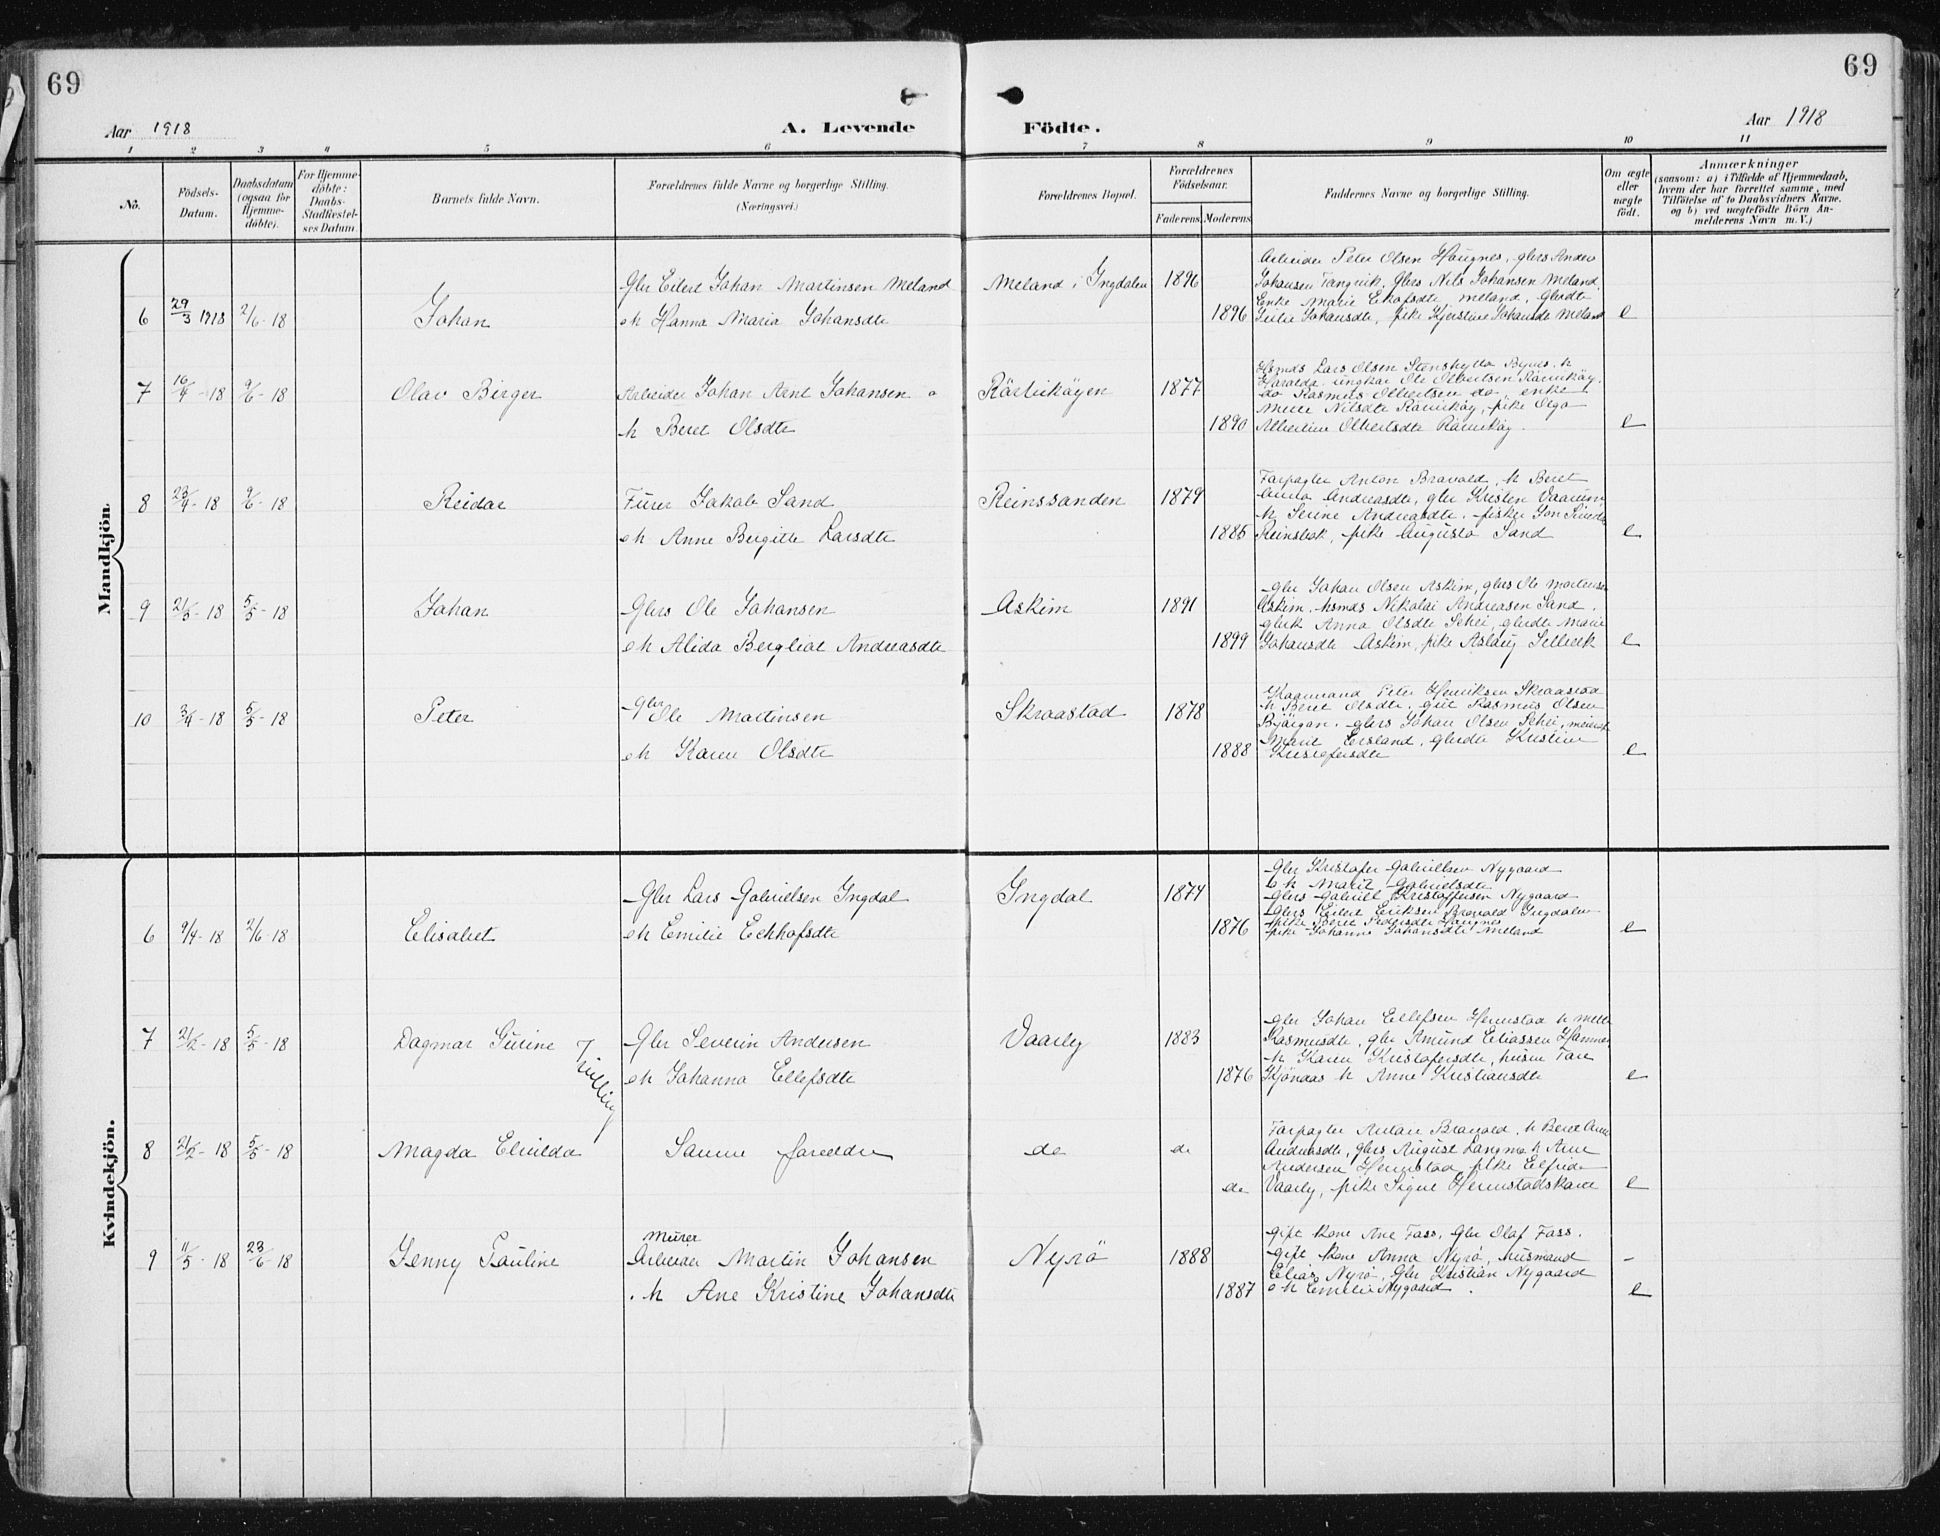 69
69
Aar 1918
A. Levende Födte.
Aar 1918
1 2 3 4 5 6 7 8 9 10 11
No.
Födsels-Datum.
Daabsdatum (ogsaa for Hjemme-döbte).
For Hjemme-döbte: Daabs-Stadfæstel-ses Datum.
Barnets fulde Navn.
Forældrenes fulde Navne og borgerlige Stilling.
(Næringsvei.)
Forældrenes Bopæl.
Forældrenes Födselsaar.
Faderens. Moderens.
Faddernes Navne og borgerlige Stilling.
Om ægte eller uægte födt.
Anmærkninger
(saasom: a) i Tilfælde af Hjemmedaab,
hvem der har forrettet samme, med
Tilföielse af to Daabsvidners Navne.
og b) ved uægtefödte Börn An-
melderens Navn m. V.)
Mandkjön.
6 29/3 1918 2/6-18 Johan
Gbr Eilert Johan Martinsen Meland
o h Hanna Maria Johansdtr
Meland i Ingdalen 1896
1896 e
Arbeider Peter Olsen Haugnes, gbrs Anders
Johansen Tangvik, Gbrs Nils Johansen Meland,
Enke Marie Meland, Gbrdtr
Johansdtr, pike Kjerstine Johansdt Meland
7 16/4-18 9/6-18 Olav Birger
Arbeider Johan Arnt Johansen o
h Beret Olsdtr
1877
1890 e
Hsmds Lars Olsen Bynes, h
Haralda, ungkar Ole Olbertsen
do Rasmus Olbertsen do, enke
Nilsdtr pike Olga
Albertine Olbertsdtr
8 23/4-18 9/6-18 Reidar
Furer Jakob Sand
o h Anne Bergitte Larsdtr
Reinssanden 1879
1885 e
Farpagter Anton Bravold, h Beret
Anna Andreasdtr, gbr Kristen
h Serine Andreasdtr, fisker Jon
Reinsbak, pike Augusta Sand
9 21/3-18 5/5-18 Johan
Gbrs Ole Johansen
o h Alida Bergliot Andreasdtr
Askim 1891
1899 e
Gbr Johan Olsen Askim, gbrs Ole Martinsen
Askim, hsmds Nikolai Andreasen Sand,
gbrk Anna Olsdtr Schei, gbrdtr Marie
Johansdtr Askim, pike Aslaug Selbek
10 3/4-18 5/5-18 Peter
Gbr Ole Martinsen
o h Karen Olsdtr
Skraastad 1878
1888 e
Kaarmand Peter Henriksen Skraastad
h Beret Olsdtr, gut Rasmus Olsen
Bjørgan, gbrs Johan Olsen Schei, meierst
Marit Leesland, gbrdtr Kristine
Kristofersdtr
Kvindekjön.
6 9/4-18 2/6-18 Elisabet
Gbr Lars Gabrielsen Ingdal
o h Emilie Eckhofsdtr
Ingdal 1874
1876 e
Gbr Kristofer Gabrielsen Nygaard
o h Marit Gabrielsdtr
Gbrs Gabriel Kristoffersen Nygaard
Gbrs Eilert Eriksen Bravold Ingdalen
pike Beret Pedersdtr Haugnes
pike Johanne Johansdtr Meland
7 21/2-18 5/5-18 Dagmar Gurine Tvilling
Gbr Severin Andersen
o h Johanna Ellefsdtr
Vaarly 1883
1876 e
Gbr Johan Ellefsen Hernstad h Mette
Rasmusdtr, gbr Amund Eliassen Hammer
h Karen Kristofersdtr,
h Anne Kristiansdtr
8 21/2-18 5/5-18 Magda Elvilda
Samme foreldre
do do
do e
Farpagter Anton Bravold, h Beret Anna
Andreasdtr, gbrs August Langmo h Ane
Andersen Hernstad, pike Elfrida
Vaarly, pike Signe Hernstadskare
9 11/5-18 23/6-18 Jenny Pauline
Murer
Arbeider Martin Johansen
o h Ane Kristine Johansdtr
Nyrö 1888 -
1887 e
Gift kone Ane Fass, Gbr Olaf Fass.
Gift kone Anna Nyrö, husmand
Elias Nyrö, Gbr Kristian Nygaard
o h Emelie Nygaard.